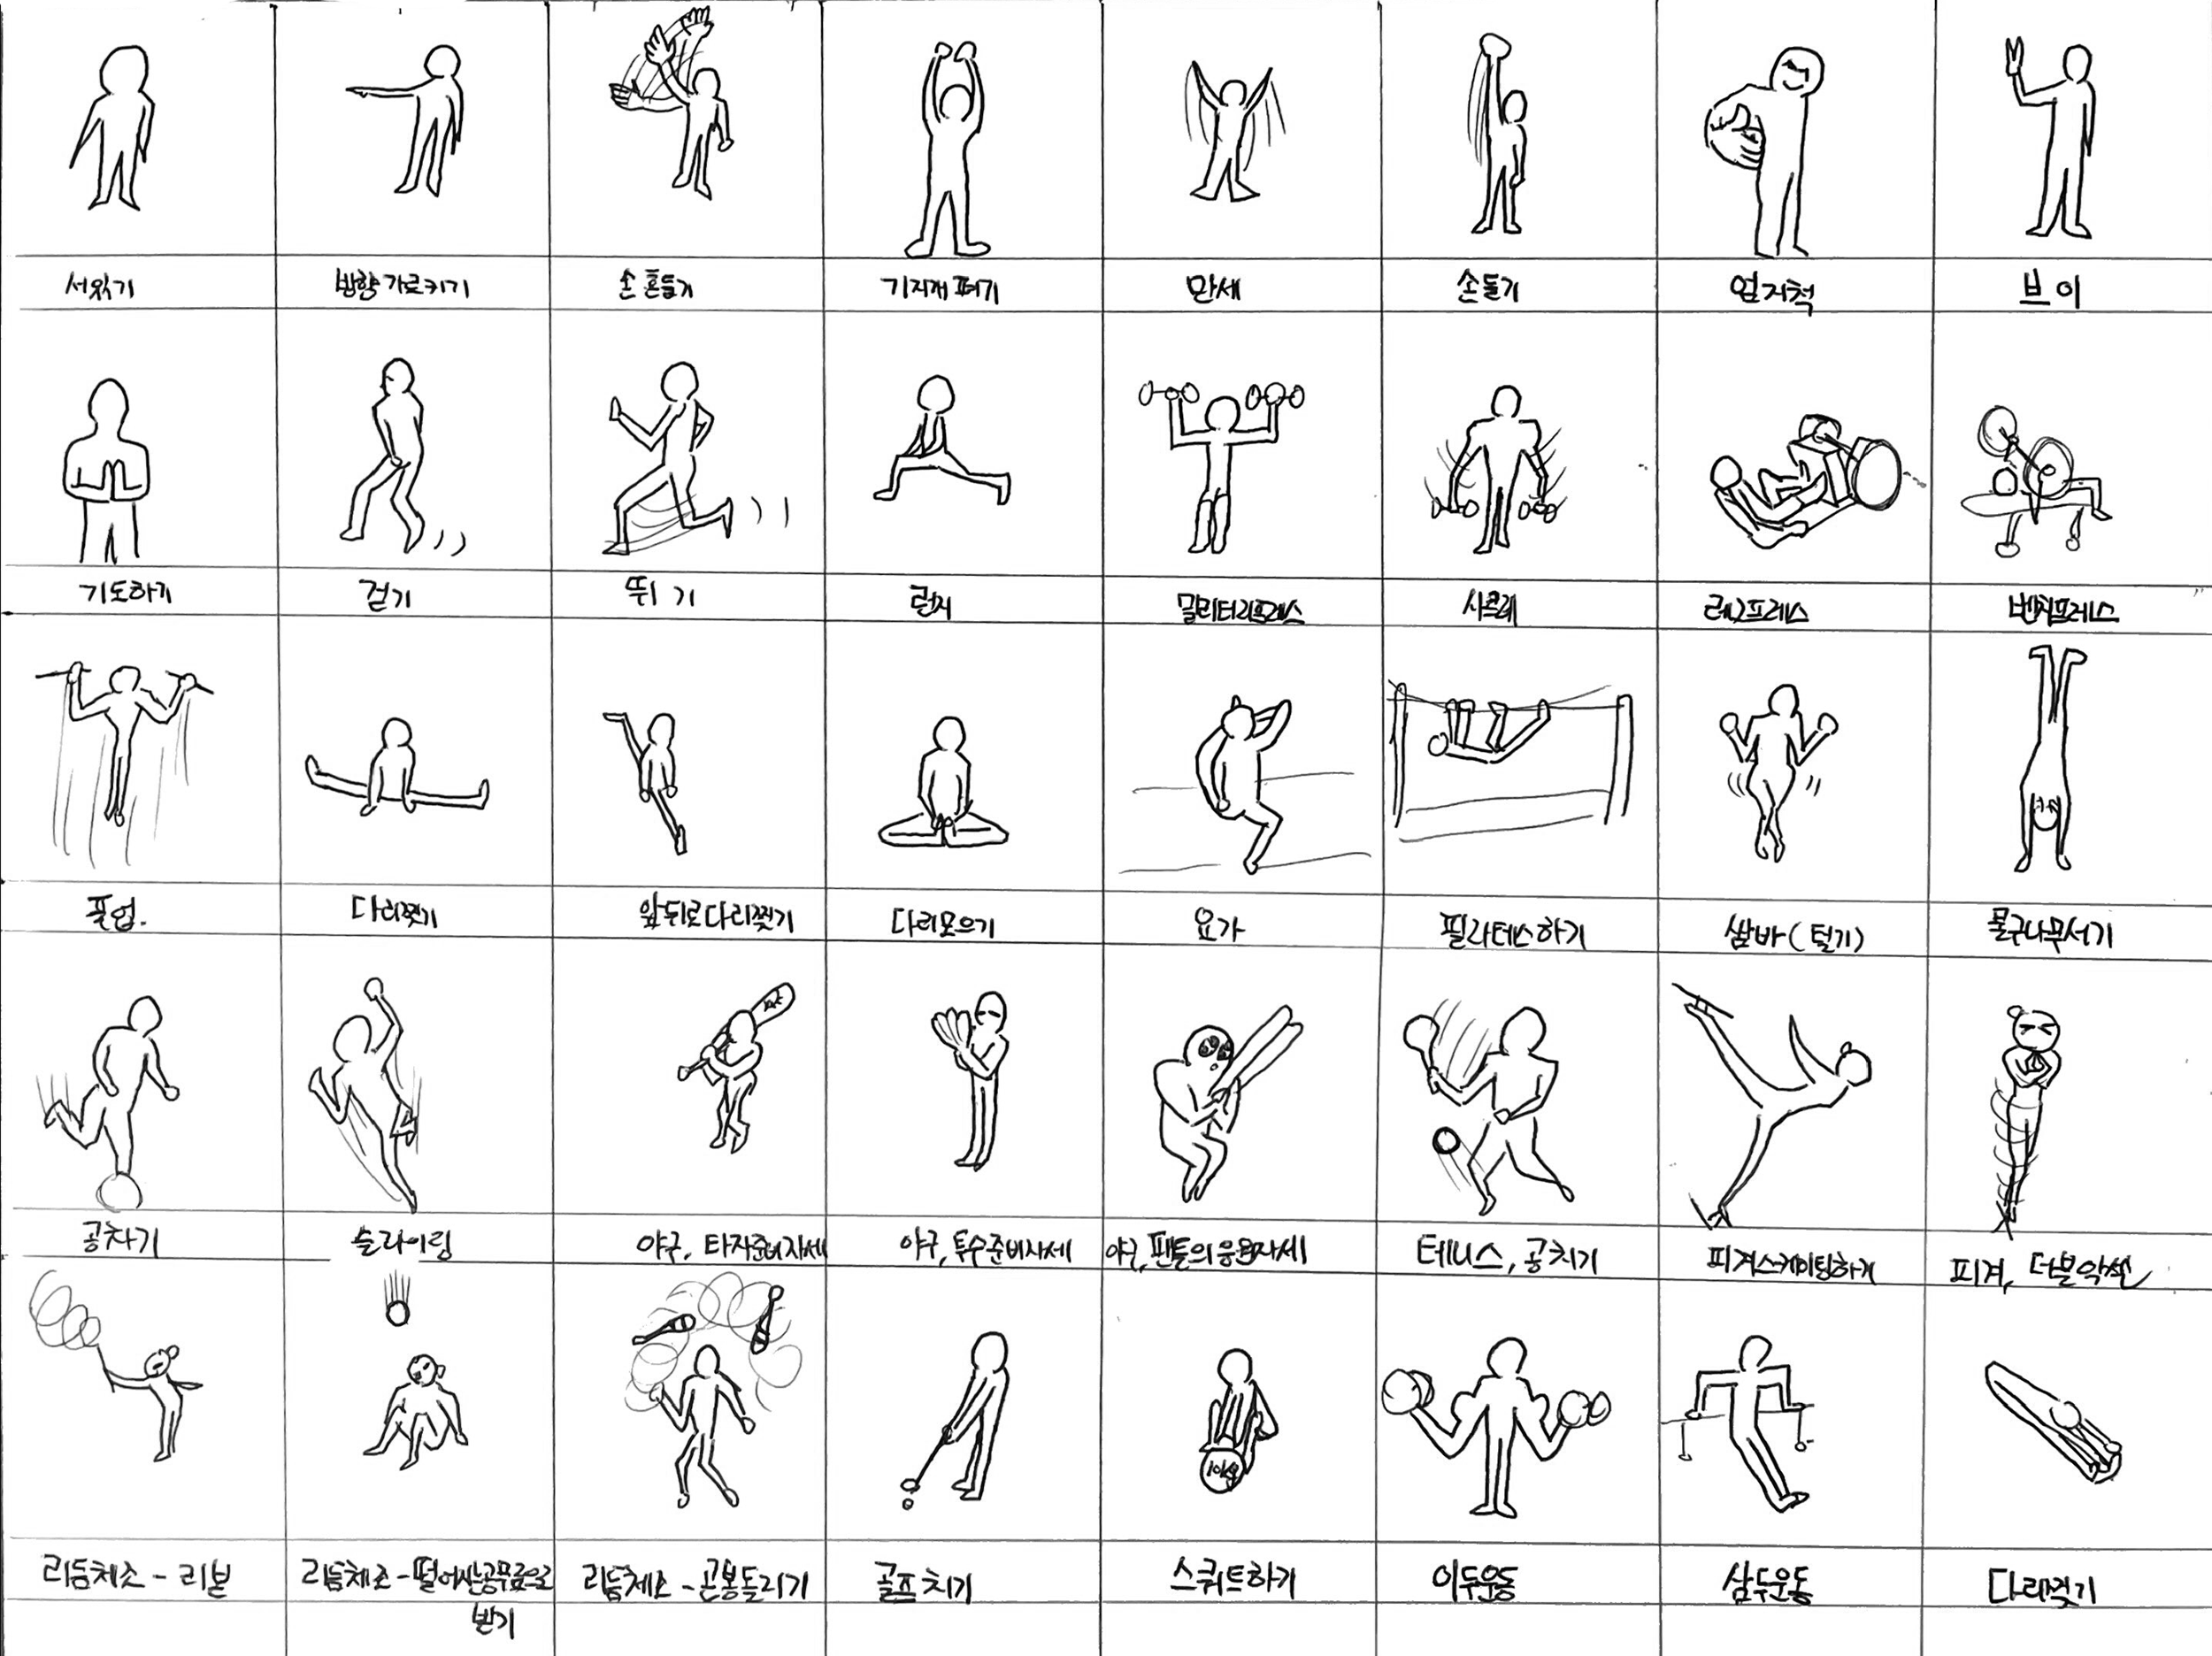 서있기
방향 가르키기
손 흔들기
기지개 펴기
만세
손들기
엄지척
브이
기도하기
걷기
뛰기
런지
밀리터리프레스
사레레
레그프레스
벤치프레스
풀업.
다리찢기
앞뒤로다리찢기
다리모으기
요가
필라테스하기
쌈바(털기)
물구나무서기
공차기
슬라이링
야구, 타자준비자세
야구, 투수준비자세
야구, 팬들의응원자세
테니스, 공치기
피겨스케이팅하기
피겨, 더블악셀
리듬체조 - 리본
리듬체조 - 떨어지는공무릎으로
받기
리듬체조 - 곤봉돌리기
골프 치기
스쿼트하기
이두운동
삼두운동
다리찢기